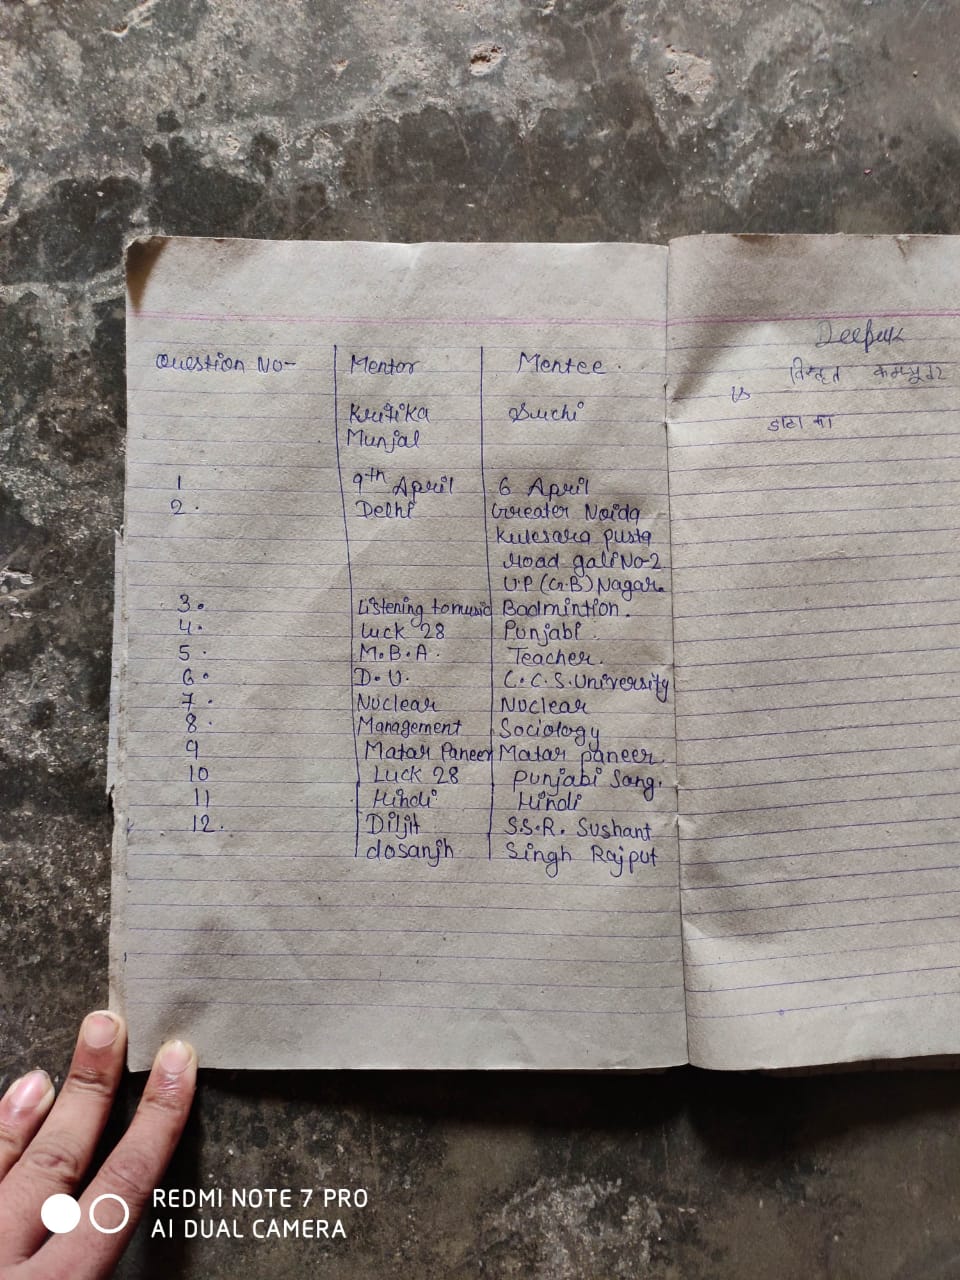 Question No- Mentor Mentee.
Kritika Suchi
Munjal
1 9th April 6 April
2. Delhi Greater Noida
Kulesara pusta
road gali No-2
U.P (G.B) Nagar.
3. Listening to music Badmintion.
4. Luck 28 Punjabi.
5. M.B.A. Teacher.
6. D.U. C.C.S. University
7. Nuclear Nuclear
8. Management Sociology
9 Matar Paneer Matar paneer.
10 Luck 28 Punjabi Song.
11 Hindi Hindi
12. Diljit S.S.R. Sushant
dosanjh Singh Rajput
Deepak
कम्प्यूटर
डाटा का
REDMI NOTE 7 PRO
AI DUAL CAMERA